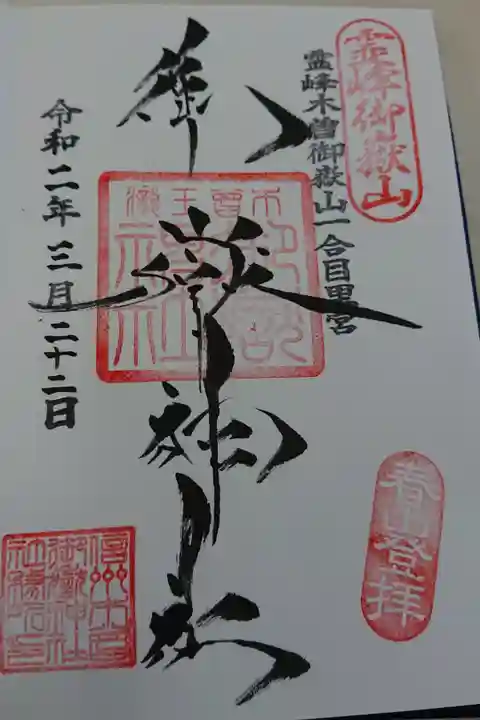 霊峰御嶽山
霊峰木曽御嶽山一合目里宮
御嶽神社
令和二年三月二十二日
春山登拝